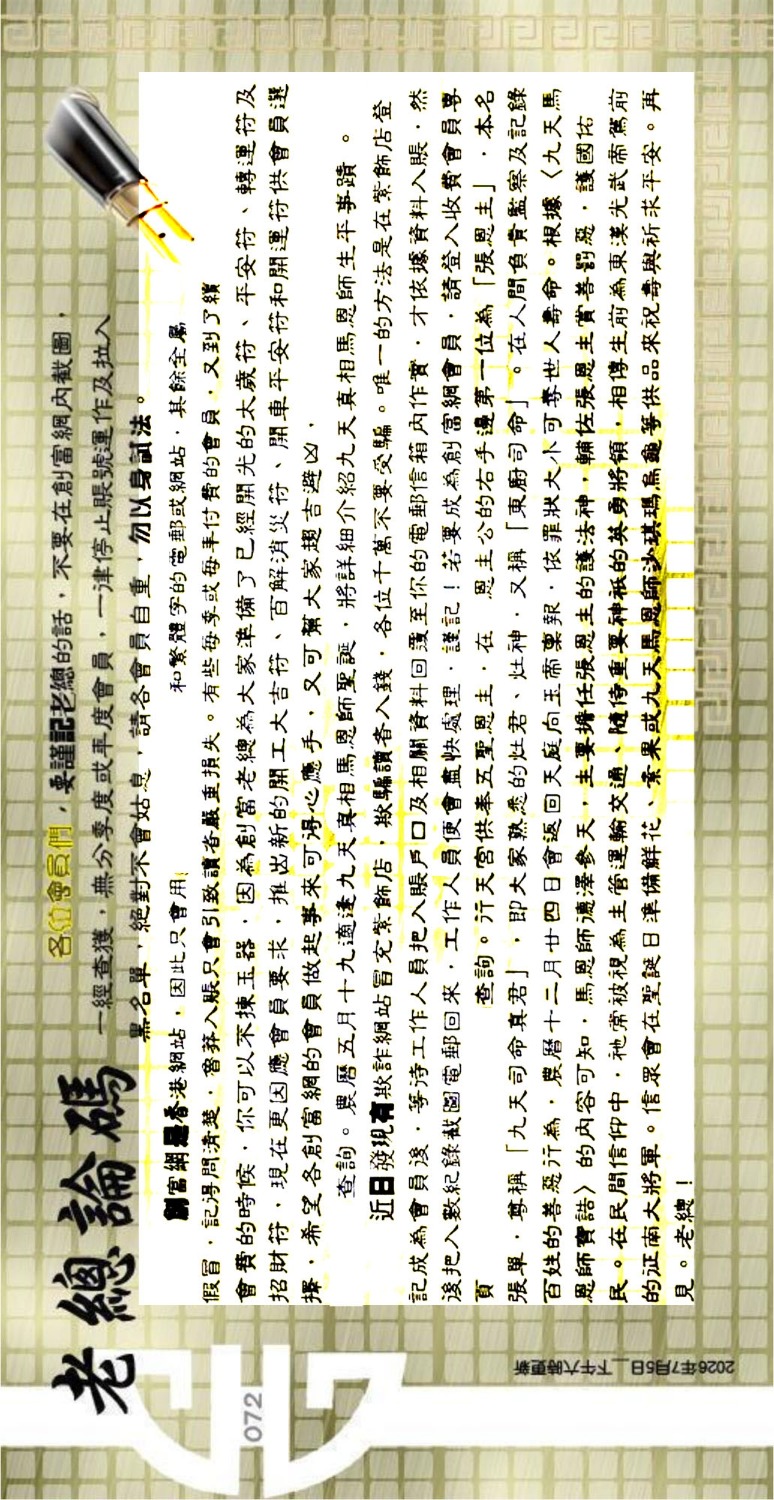 老總論碼
各位會員們，要謹記老總的話，不要在創富網內截圖，
一經查獲，無分季度或年度會員，一律停止賬號運作及拉入
黑名單，絕對不會姑息，請各會員自重，勿以身試法。
創富網是香港網站，因此只會用 和繁體字的電郵或網站，其餘全屬
假冒，記得問清楚，魯莽入賬只會引致讀者嚴重損失。有些每季或每年付費的會員，又到了續
會費的時候，你可以不揀玉器，因為創富老總為大家準備了已經開光的太歲符、平安符、轉運符及
招財符，現在更因應會員要求，推出新的開工大吉符、百解消災符、開車平安符和開運符供會員選
擇，希望各創富網的會員做起事來可得心應手，又可幫大家趨吉避凶，
查詢。農曆五月十九適逢九天真相馬恩師聖誕，將詳細介紹九天真相馬恩師生平事蹟。
近日發現有欺詐網站冒充紫飾店，欺騙讀者入錢，各位千萬不要受騙。唯一的方法是在紫飾店登
記成為會員後，等待工作人員把入賬戶口及相關資料回覆至你的電郵信箱內作實，才依據資料入賬，然
後把入數紀錄截圖電郵回來，工作人員便會盡快處理，謹記！若要成為創富網會員，請登入收費會員專
頁 查詢。行天宮供奉五聖恩主，在 恩主公的右手邊第一位為「張恩主」，本名
張單，尊稱「九天司命真君」，即大家熟悉的灶君、灶神，又稱「東廚司命」。在人間負責監察及記錄
百姓的善惡行為，農曆十二月廿四日會返回天庭向玉帝稟報，依罪狀大小可奪世人壽命。根據〈九天馬
恩師寶誥〉的內容可知，馬恩師德澤參天，主要擔任張恩主的護法神，輔佐張恩主賞善罰惡，護國佑
民。在民間信仰中，祂常被視為主管運輸交通、隨侍重要神祇的英勇將領，相傳生前為東漢光武帝駕前
的征南大將軍。信眾會在聖誕日準備鮮花、素果或九天馬恩師沙琪瑪烏龜等供品來祝壽與祈求平安。再
見。老總！
072
2026年7月5日__下午六時更新